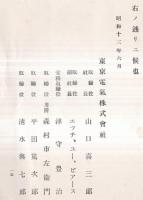 右ノ通リニ候也
昭和十二年六月
東京電氣株式會社
取締役社長 山口喜三郎
取締役副社長 エッチ、ユー、ピアース
常務取締役 津守豊治
取締役 森村市左衛門
取締役 平田篤次郎
取締役 清水與七郎